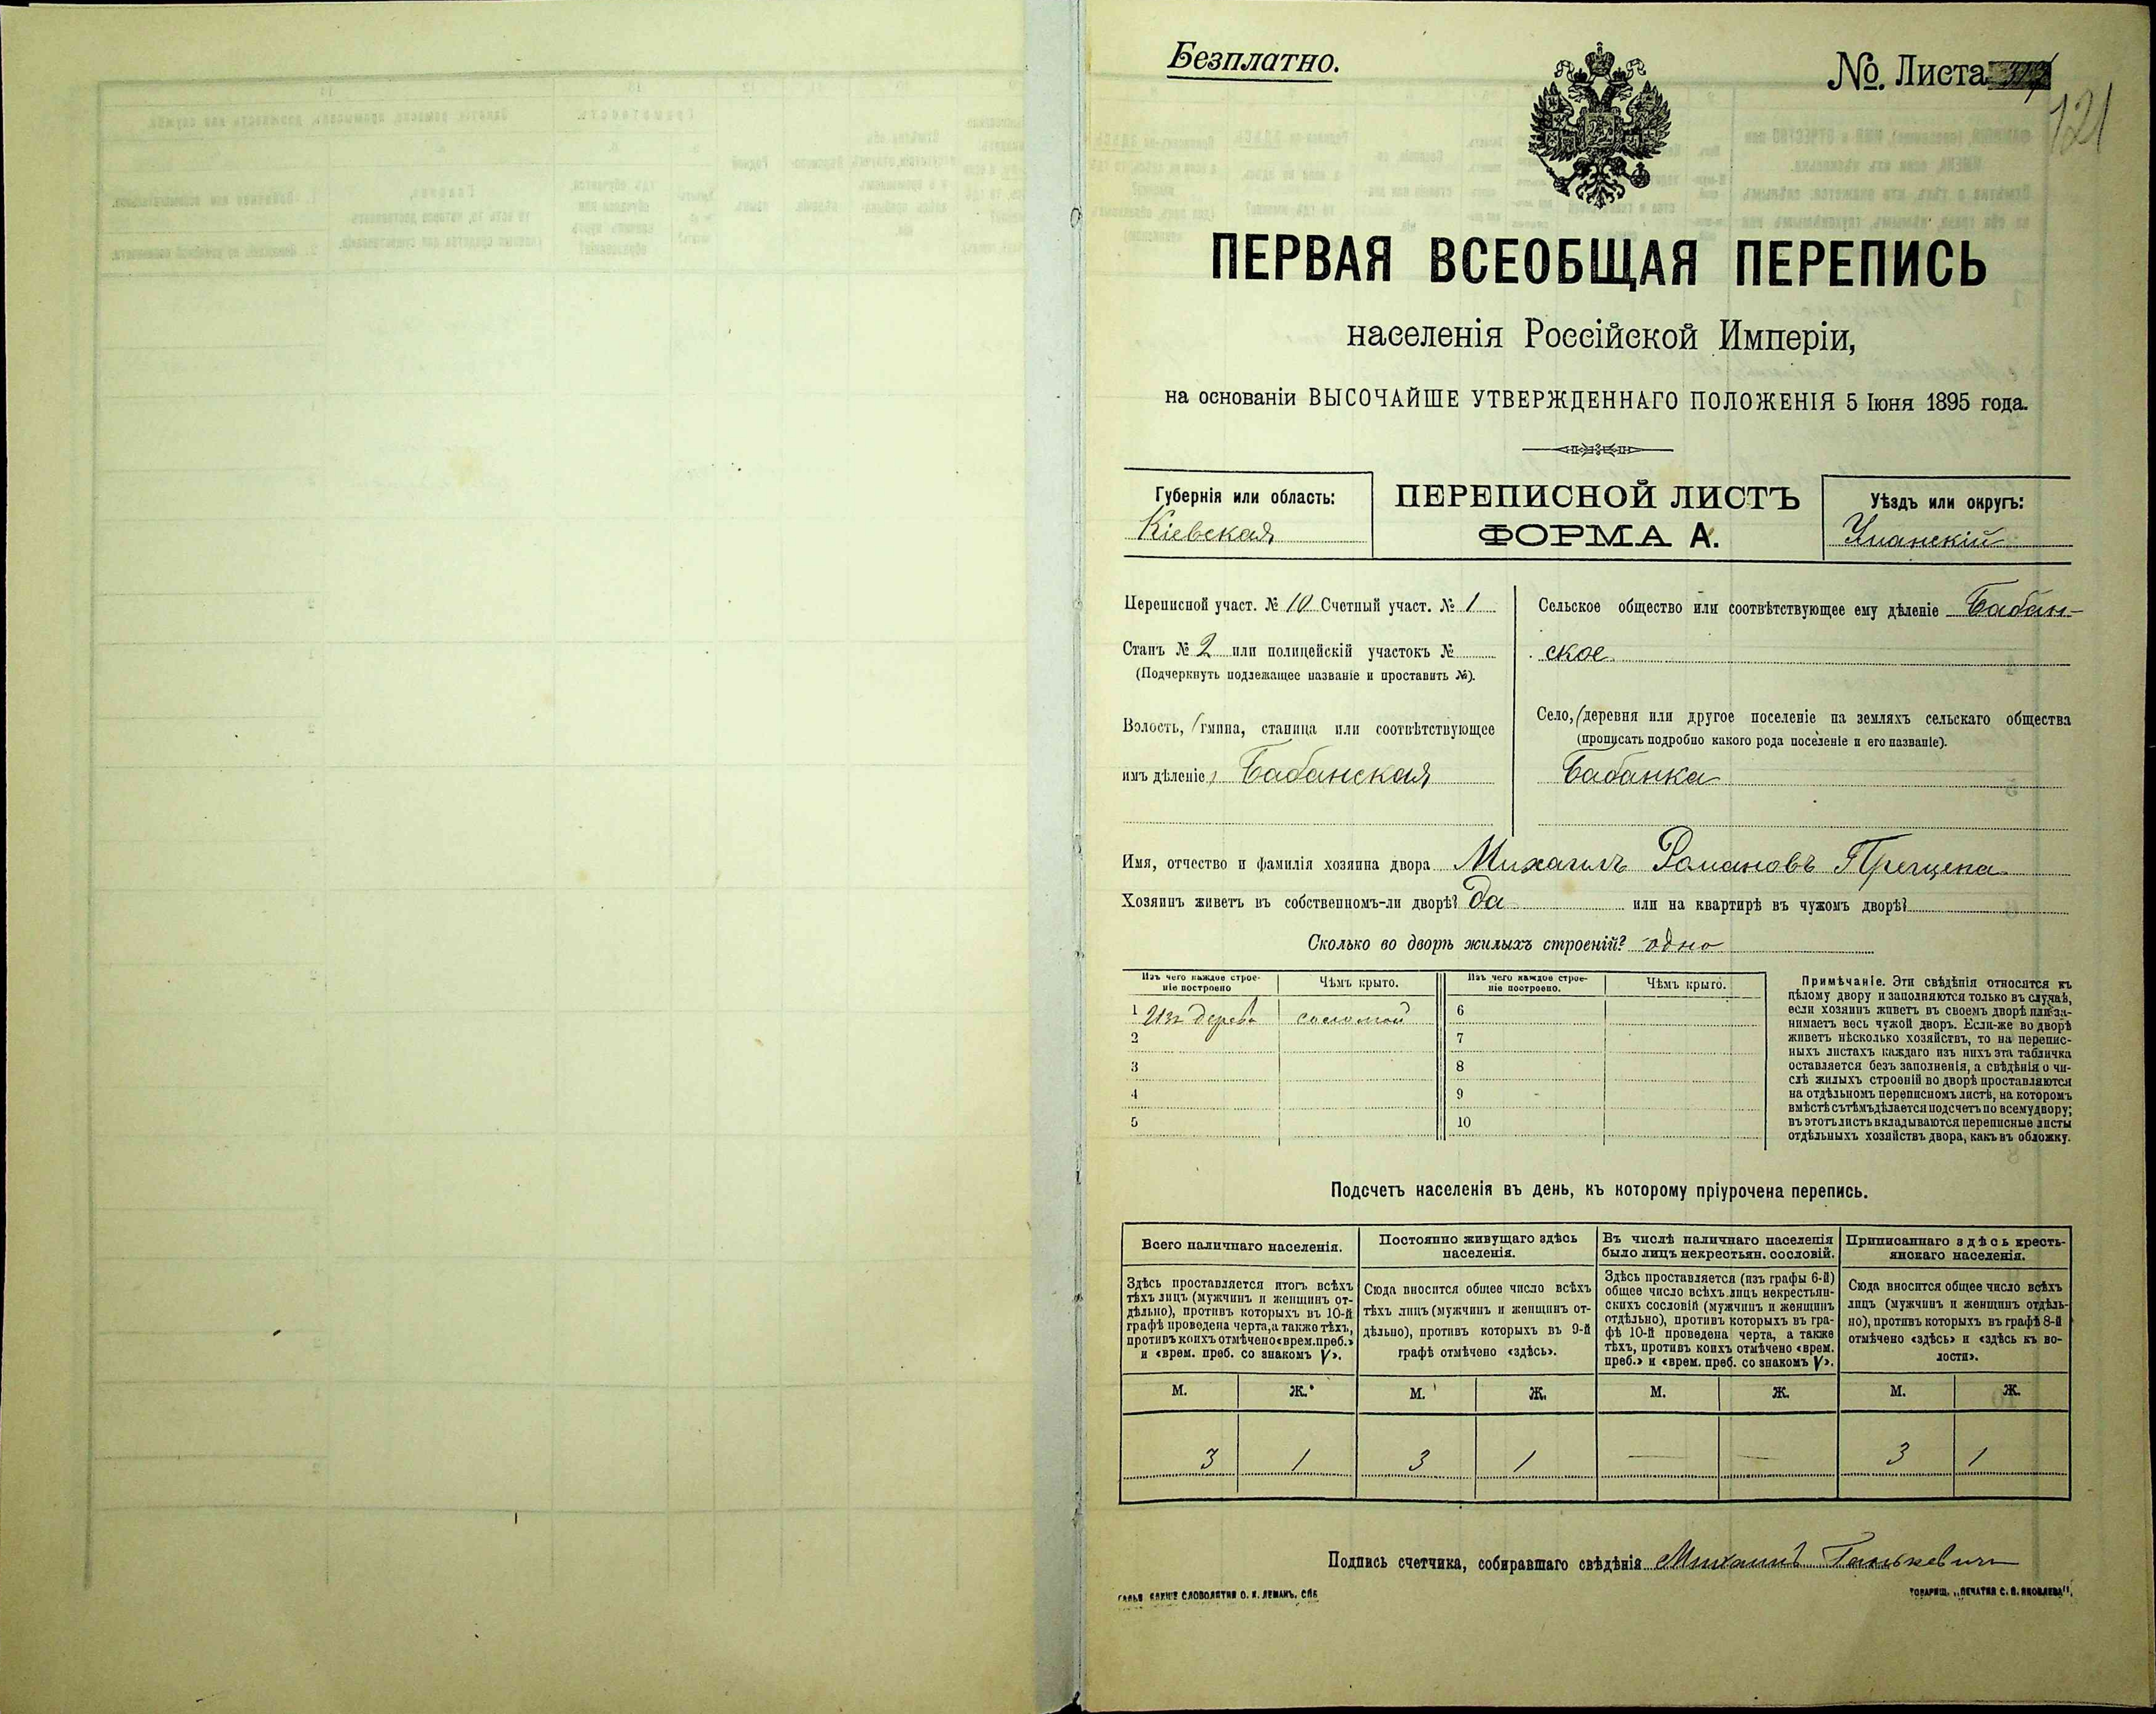 Безплатно.
№. Листа
121
ПЕРВАЯ ВСЕОБЩАЯ ПЕРЕПИСЬ
населенія Россійской Имперіи,
на основаніи ВЫСОЧАЙШЕ УТВЕРЖДЕННАГО ПОЛОЖЕНІЯ 5 Іюня 1895 года.
Губернія или область:
Кіевская
ПЕРЕПИСНОЙ ЛИСТЪ
ФОРМА А.
Уѣздъ или округъ:
Уманскій
Переписной участ. № 10 Счетный участ. № 1
Станъ № 2 или полицейскій участокъ №
(Подчеркнуть подлежащее названіе и проставить №).
Волость, гмина, станица или соотвѣтствующее
имъ дѣленіе, Бабанская
Сельское общество или соотвѣтствующее ему дѣленіе Бабан-
ское
Село, деревня или другое поселеніе на земляхъ сельскаго общества
(прописать подробно какого рода поселеніе и его названіе).
Бабанка
Имя, отчество и фамилія хозяина двора Михаилъ Романовъ
Хозяинъ живетъ въ собственномъ-ли дворѣ? да или на квартирѣ въ чужомъ дворѣ?
Сколько во дворѣ жилыхъ строеній? одно
Изъ чего каждое строе-
ніе построено
Чѣмъ крыто.
Изъ чего каждое строе-
ніе построено.
Чѣмъ крыто.
1 Изъ дерева соломой 6
2 7
3 8
4 9
5 10
Примѣчаніе. Эти свѣдѣнія относятся къ
цѣлому двору и заполняются только въ случаѣ,
если хозяинъ живетъ въ своемъ дворѣ или за-
нимаетъ весь чужой дворъ. Если-же во дворѣ
живетъ нѣсколько хозяйствъ, то на перепис-
ныхъ листахъ каждаго изъ нихъ эта табличка
оставляется безъ заполненія, а свѣдѣнія о чи-
слѣ жилыхъ строеній во дворѣ проставляются
на отдѣльномъ переписномъ листѣ, на которомъ
вмѣстѣ съ тѣмъ дѣлается подсчетъ по всему двору;
въ этотъ листъ вкладываются переписные листы
отдѣльныхъ хозяйствъ двора, какъ въ обложку.
Подсчетъ населенія въ день, къ которому пріурочена перепись.
Всего наличнаго населенія.
Здѣсь проставляется итогъ всѣхъ
тѣхъ лицъ (мужчинъ и женщинъ от-
дѣльно), противъ которыхъ въ 10-й
графѣ проведена черта, а также тѣхъ,
противъ коихъ отмѣчено «врем. преб.»
и «врем. преб. со знакомъ V».
Постоянно живущаго здѣсь
населенія.
Сюда вносится общее число всѣхъ
тѣхъ лицъ (мужчинъ и женщинъ от-
дѣльно), противъ которыхъ въ 9-й
графѣ отмѣчено «здѣсь».
Въ числѣ наличнаго населенія
было лицъ некрестьян. сословій.
Здѣсь проставляется (изъ графы 6-й)
общее число всѣхъ лицъ некрестьян-
скихъ сословій (мужчинъ и женщинъ
отдѣльно), противъ которыхъ въ гра-
фѣ 10-й проведена черта, а также
тѣхъ, противъ коихъ отмѣчено «врем.
преб.» и «врем. преб. со знакомъ V».
Приписаннаго здѣсь кресть-
янскаго населенія.
Сюда вносится общее число всѣхъ
лицъ (мужчинъ и женщинъ отдѣль-
но), противъ которыхъ въ графѣ 8-й
отмѣчено «здѣсь» и «здѣсь къ во-
лости».
М. Ж. М. Ж. М. Ж. М. Ж.
3 1 3 1 — — 3 1
Подпись счетчика, собиравшаго свѣдѣнія Михаилъ
СЛОВОЛИТНИ О. И. ЛЕМАНЪ, СПБ
ТОВАРИЩ. „ПЕЧАТНЯ С. П. ЯКОВЛЕВА".